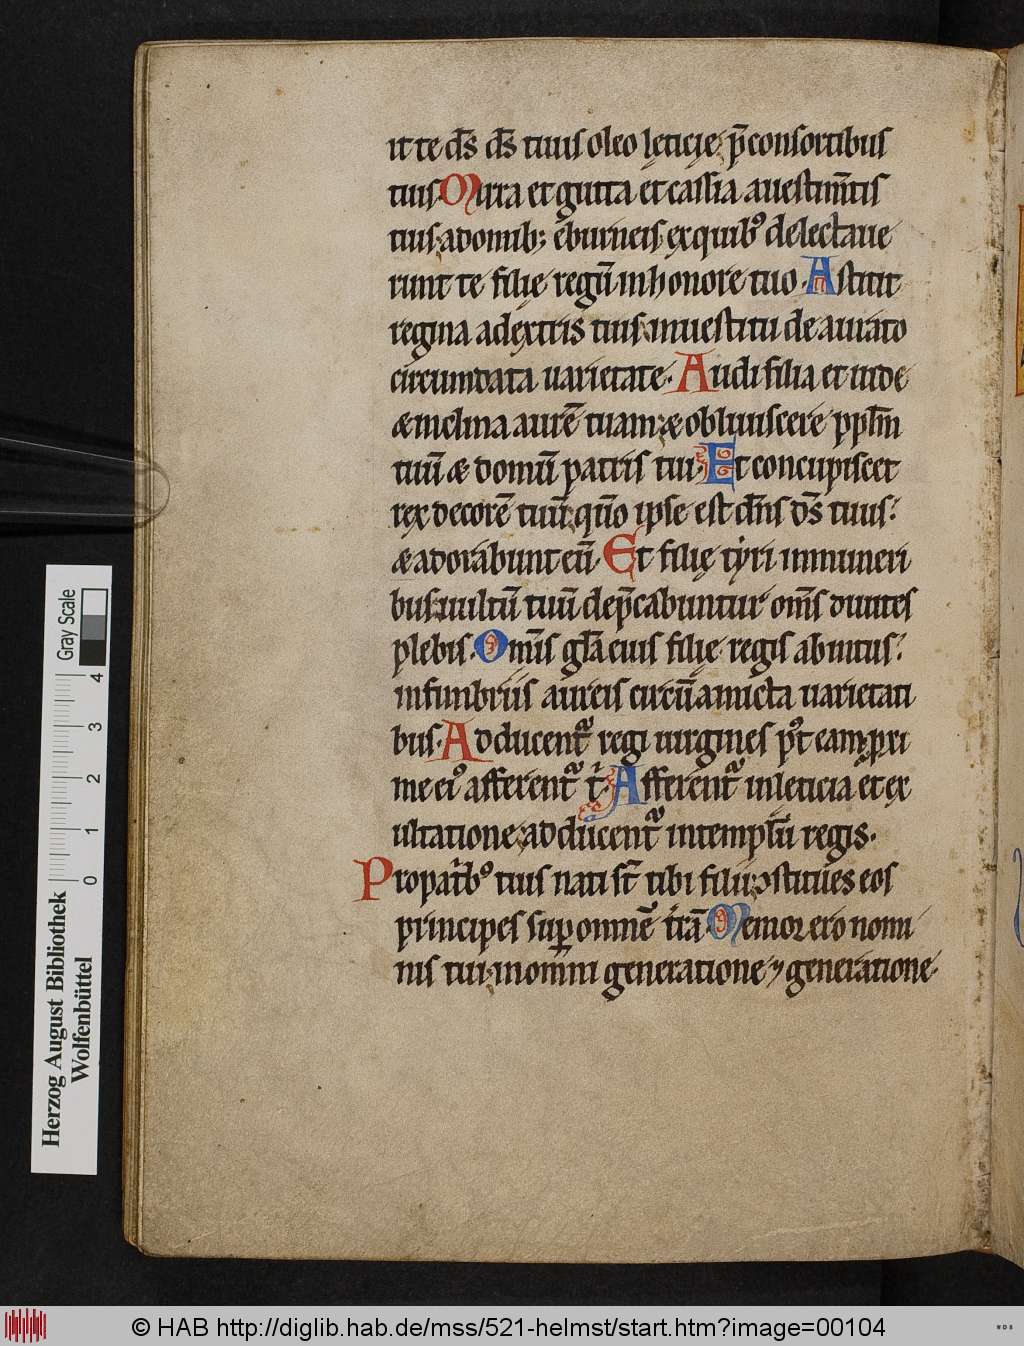 it te ds̄ ds̄ tuus oleo lęticię p̄ consortibus
tuis. Mirra et gutta et cassia a uestim̄tis
tuis. a domib; eburneis. ex quib⁹ delectaue
runt te filię regū in honore tuo. Astitit
regina a dextris tuis. in uestitu deaurato
circumdata uarietate. Audi filia et uide
æ inclina aurē tuam. æ obliuiscere pplm̄
tuū æ domū patris tui. Et concupiscet
rex decorē tuū. qm̄o ipse est dn̄s ds̄ tuus.
æ adorabunt eū. Et filię tyri in muneri
bus. uultū tuū dep̄cabuntur om̄s diuites
plebis. Om̄is gl̄a eius filię regis ab intus.
in fimbriis aureis circūamicta uarietati
bus. Adducentᷓ regi uirgines p⁹t eam. pri
me ei⁹ afferentᷓ t̄. Afferentᷓ in leticia et ex
ultatione. adducentᷓ in templū regis.
Pro patrib⁹ tuis nati st̄ tibi filii. ↄstitues eos
principes sup omnē trā. Memor ero nomi
nis tui. in omni generatione ⁊ generatione.
Gray Scale
4
3
2
1
0
Herzog August Bibliothek
Wolfenbüttel
© HAB http://diglib.hab.de/mss/521-helmst/start.htm?image=00104